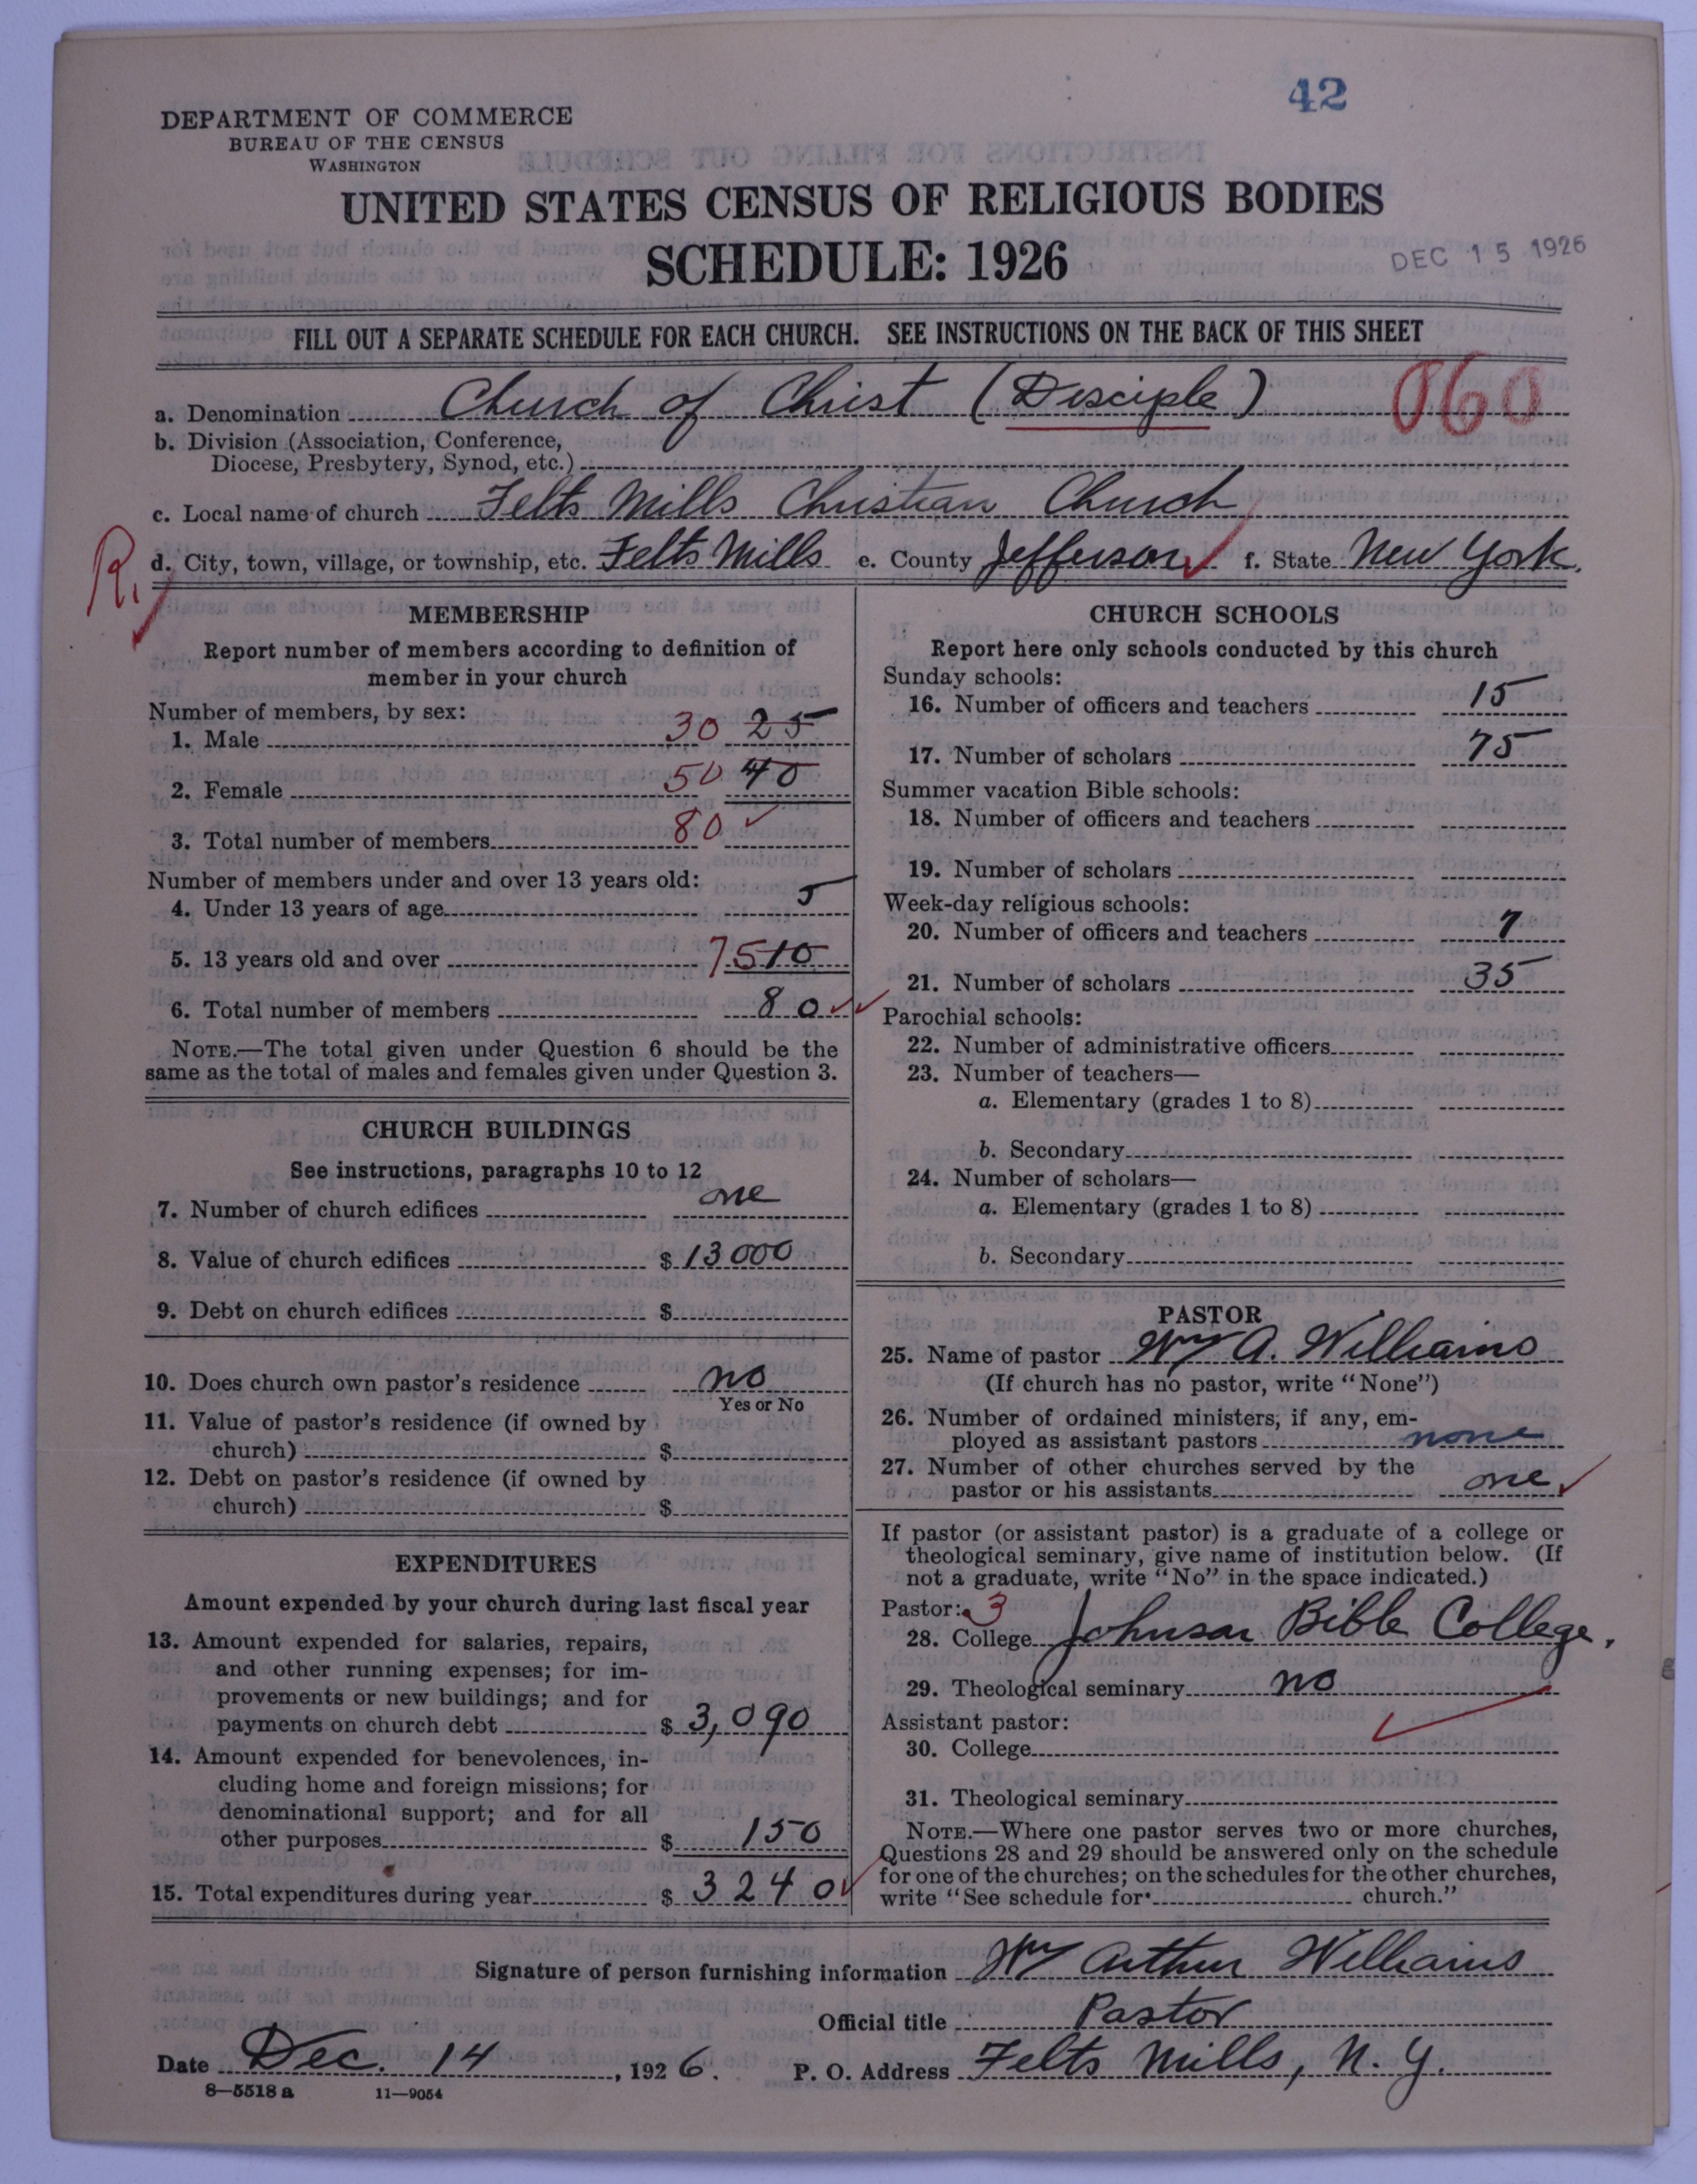 42
DEPARTMENT OF COMMERCE
BUREAU OF THE CENSUS
WASHINGTON
UNITED STATES CENSUS OF RELIGIOUS BODIES
SCHEDULE: 1926
DEC 15 1926
FILL OUT A SEPARATE SCHEDULE FOR EACH CHURCH. SEE INSTRUCTIONS ON THE BACK OF THIS SHEET
a. Denomination Church of Christ (Disciple) 060
b. Division (Association, Conference,
Diocese, Presbytery, Synod, etc.)
c. Local name of church Felts Mills Christian Church
R. d. City, town, village, or township, etc. Felts Mills e. County Jefferson f. State New York.
MEMBERSHIP
Report number of members according to definition of
member in your church
Number of members, by sex:
1. Male 30 25
2. Female 50 40
3. Total number of members 80
Number of members under and over 13 years old:
4. Under 13 years of age 5
5. 13 years old and over 75 10
6. Total number of members 80
NOTE.—The total given under Question 6 should be the
same as the total of males and females given under Question 3.
CHURCH BUILDINGS
See instructions, paragraphs 10 to 12
7. Number of church edifices one
8. Value of church edifices $ 13000
9. Debt on church edifices $
10. Does church own pastor's residence no
Yes or No
11. Value of pastor's residence (if owned by
church) $
12. Debt on pastor's residence (if owned by
church) $
EXPENDITURES
Amount expended by your church during last fiscal year
13. Amount expended for salaries, repairs,
and other running expenses; for im-
provements or new buildings; and for
payments on church debt $ 3,090
14. Amount expended for benevolences, in-
cluding home and foreign missions; for
denominational support; and for all
other purposes $ 150
15. Total expenditures during year $ 3240
CHURCH SCHOOLS
Report here only schools conducted by this church
Sunday schools:
16. Number of officers and teachers 15
17. Number of scholars 75
Summer vacation Bible schools:
18. Number of officers and teachers
19. Number of scholars
Week-day religious schools:
20. Number of officers and teachers 7
21. Number of scholars 35
Parochial schools:
22. Number of administrative officers
23. Number of teachers—
a. Elementary (grades 1 to 8)
b. Secondary
24. Number of scholars—
a. Elementary (grades 1 to 8)
b. Secondary
PASTOR
25. Name of pastor Wm A. Williams
(If church has no pastor, write "None")
26. Number of ordained ministers, if any, em-
ployed as assistant pastors none
27. Number of other churches served by the
pastor or his assistants one
If pastor (or assistant pastor) is a graduate of a college or
theological seminary, give name of institution below. (If
not a graduate, write "No" in the space indicated.)
Pastor: 3
28. College Johnson Bible College.
29. Theological seminary no
Assistant pastor:
30. College
31. Theological seminary
NOTE.—Where one pastor serves two or more churches,
Questions 28 and 29 should be answered only on the schedule
for one of the churches; on the schedules for the other churches,
write "See schedule for church."
Signature of person furnishing information Wm Arthur Williams
Official title Pastor
Date Dec. 14, 1926. P. O. Address Felts Mills, N. Y.
8—5518a 11—9054